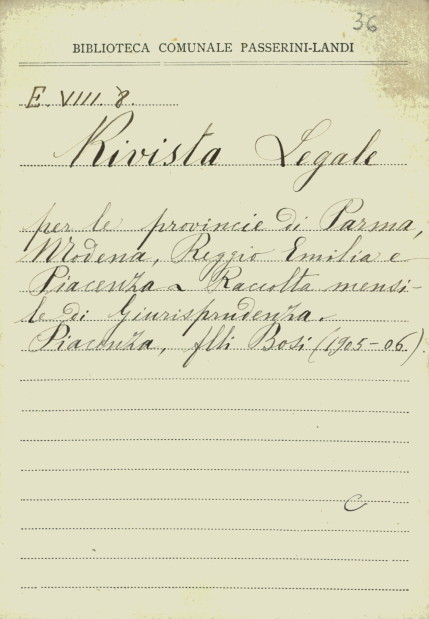 36
BIBLIOTECA COMUNALE PASSERINI-LANDI
E. VIII. 8.
Rivista Legale
per le provincie di Parma,
Modena, Reggio Emilia e
Piacenza ~ Raccolta mensi-
le di Giurisprudenza.
Piacenza, flli Bosi (1905-06).
C